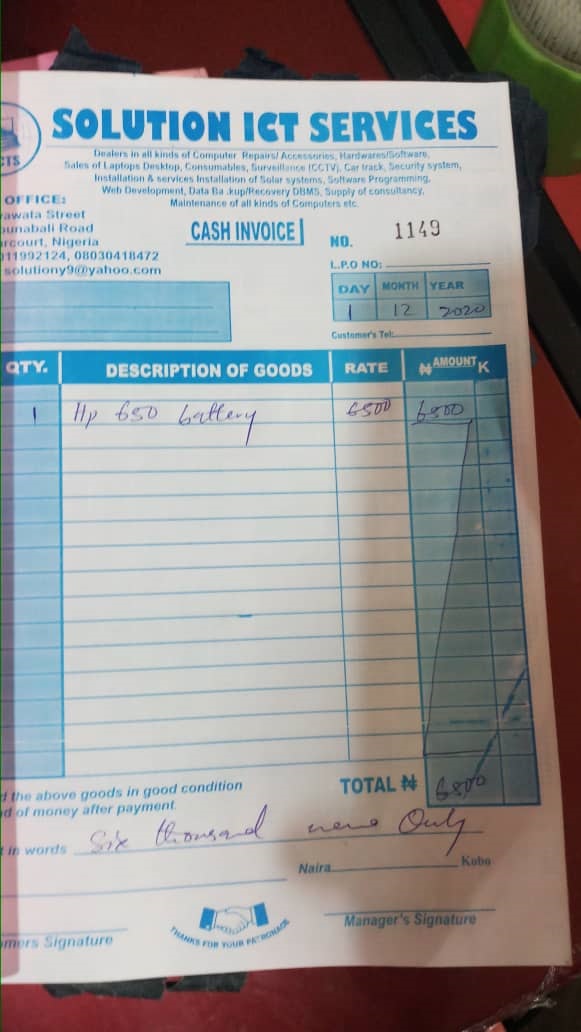 CTS
SOLUTION ICT SERVICES
Dealers in all kinds of Computer Repairs/ Accessories, Hardwares/Software,
Sales of Laptops Desktop, Consumables, Surveillance (CCTV), Car track, Security system,
Installation & services Installation of Solar systems, Software Programming,
Web Development, Data Ba .kup/Recovery DBMS, Supply of consultancy,
Maintenance of all kinds of Computers etc.
OFFICE:
rawala Street
unabali Road
rcourt, Nigeria
011992124, 08030418472
solutiony9@yahoo.com
CASH INVOICE
NO. 1149
L.P.O NO:
DAY MONTH YEAR
1 12 2020
Customer's Tel:
QTY. DESCRIPTION OF GOODS RATE ₦ AMOUNT K
1 Hp 650 battery 6500 6500
TOTAL ₦ 6500
d the above goods in good condition
nd of money after payment
t in words Six thousand Only
Naira Kobo
THANKS FOR YOUR PATRONAGE
Manager's Signature
omers Signature